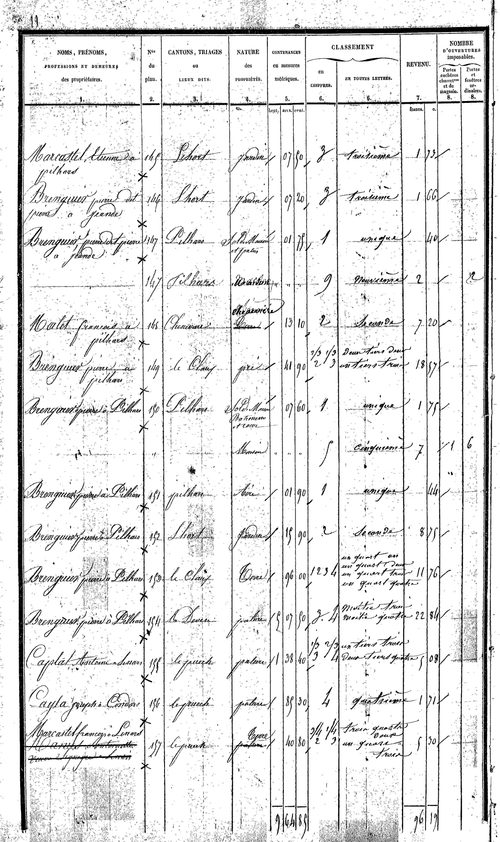 11
NOMS, PRÉNOMS,
PROFESSIONS ET DEMEURES
des propriétaires.
1.
Nos
du
plan.
2.
CANTONS, TRIAGES
ou
LIEUX DITS.
3.
NATURE
des
4.
CONTENANCES
en mesures
métriques.
5.
CLASSEMENT
en
CHIFFRES.
6.
EN TOUTES LETTRES.
REVENU.
7.
NOMBRE
D'OUVERTURES
imposables.
Portes
cochères
et de
magasin.
8.
Portes
et
fenêtres
ordinaires.
8.
hect. ares cent.
francs. c.
Marcastel, Etienne à 145 Lhort Jardin 07 50 3 troisième 1 73
pilhars
Brenguier pierre dit 146 Lhort Jardin 07 20 3 troisième 1 66
Brenguier pierre dit pierre 147 Pilhars Sol de Maison 01 75 1 unique 40
147 Pilhars Maison 9 neuvième 2 2
Marlet françois à 148 Chenevière 13 10 2 Seconde 7 20
pilhars
Brenguier pierre à 149 le Claux pré 41 90 2/3 1/3 Deux tiers deux 18 57
pilhars 2 3 un tiers trois
Brenguier pierre à Pilhars 150 Pilhars Sol de Maison 07 60 1 unique 1 75
Bâtiment
Maison 5 cinquième 7 1 6
Brenguier pierre à Pilhars 151 pilhars Aire 01 90 1 unique 44
Brenguier pierre à Pilhars 152 Lhort Jardin 15 90 2 Seconde 8 75
Brenguier pierre à Pilhars 153 le Claux Terre 96 00 1 2 3 4 un quart un
un quart deux
un quart trois 11 76
un quart quatre
Brenguier pierre à Pilhars 154 pature 5 07 50 3 4 Moitié trois
Moitié quatre 22 84
Caplat Antoine à 155 le puech pature 1 38 40 1/3 2/3 un tiers trois
3 4 Deux tiers quatre 5 08
Cayla joseph à 156 le puech pature 35 30 4 quatrième 1 71
Marcastel françois à 157 le puech Terre 40 80 3/4 1/4 trois quarts
2 3 deux
un quart 5 30
trois
9 64 85 96 19